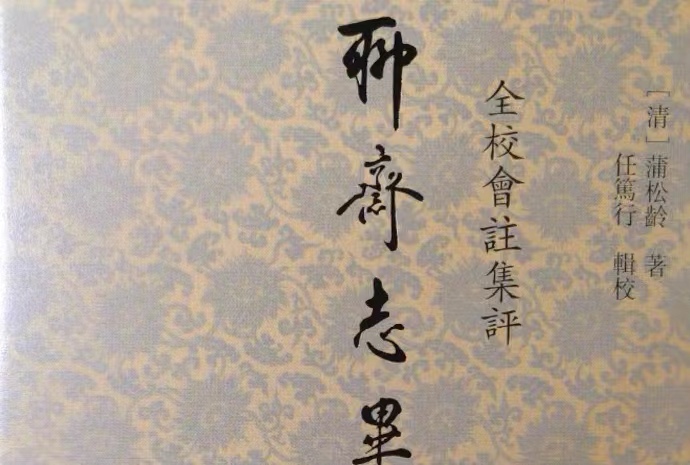 ［清］蒲松齡 著
任篤行 輯校
全校會註集評
聊齋志異